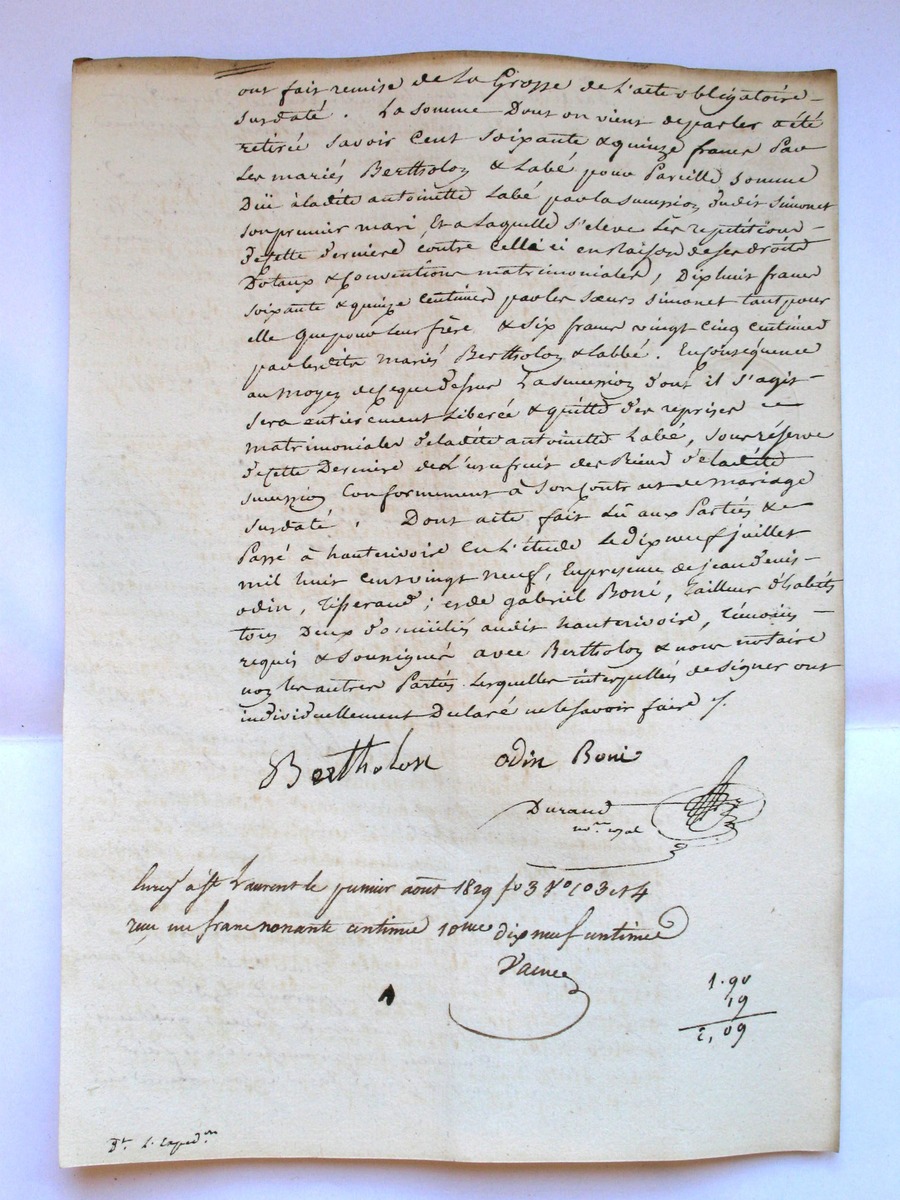 ont fait remise de La Grosse de L'acte obligatoire
susdaté. La somme Dont on vient de parler a été
retirée savoir cent soixante & quinze francs Par
Les mariés Bertholon & Labé pour Pareille somme
Düe à ladite antoinette Labé par la succession dudit Simonet
son premier mari Et a Laquelle s'eleve Les repétitions
de cette derniere contre celle ci en Raison de ses droits
Dotaux & Conventions matrimoniales, Dix huit francs
soixante & quinze centimes par les sœurs Simonet tant pour
elle que pour leur frère & six francs vingt cinq centimes
par lesdits mariés Bertholon & Labbé. En conséquence
au moyen de ce que dessus La succession dont il s'agit
sera entierement Liberée & quitte des reprises
matrimoniales de ladite antoinette Labé, sous réserve
de cette Derniere de L'usufruit des Biens de ladite
succession Conformement à son Contract de mariage
susdaté. Dont acte fait Lû aux Parties &
Passé à hauterivoire En L'étude Le dix neuf juillet
mil huit cent vingt neuf, En présence de jean denis
odin, Tisserand; et de gabriel Boni, Tailleur d'habits
tous Deux domiciliés audit hauterivoire, témoins
requis & soussignés avec Bertholon & nous notaire
non les autres Parties Lesquelles interpellées de signer ont
individuellement Declaré ne le savoir faire /.
Bertholon odin Boni
Durand
no.re royal
Enreg. a St Laurent le premier aout 1829 fo 3 Vo C 3 et 4
reçu un franc nonante centimes 10me dix neuf centimes
1.90
19
2,09
Dt. L. Exped.on